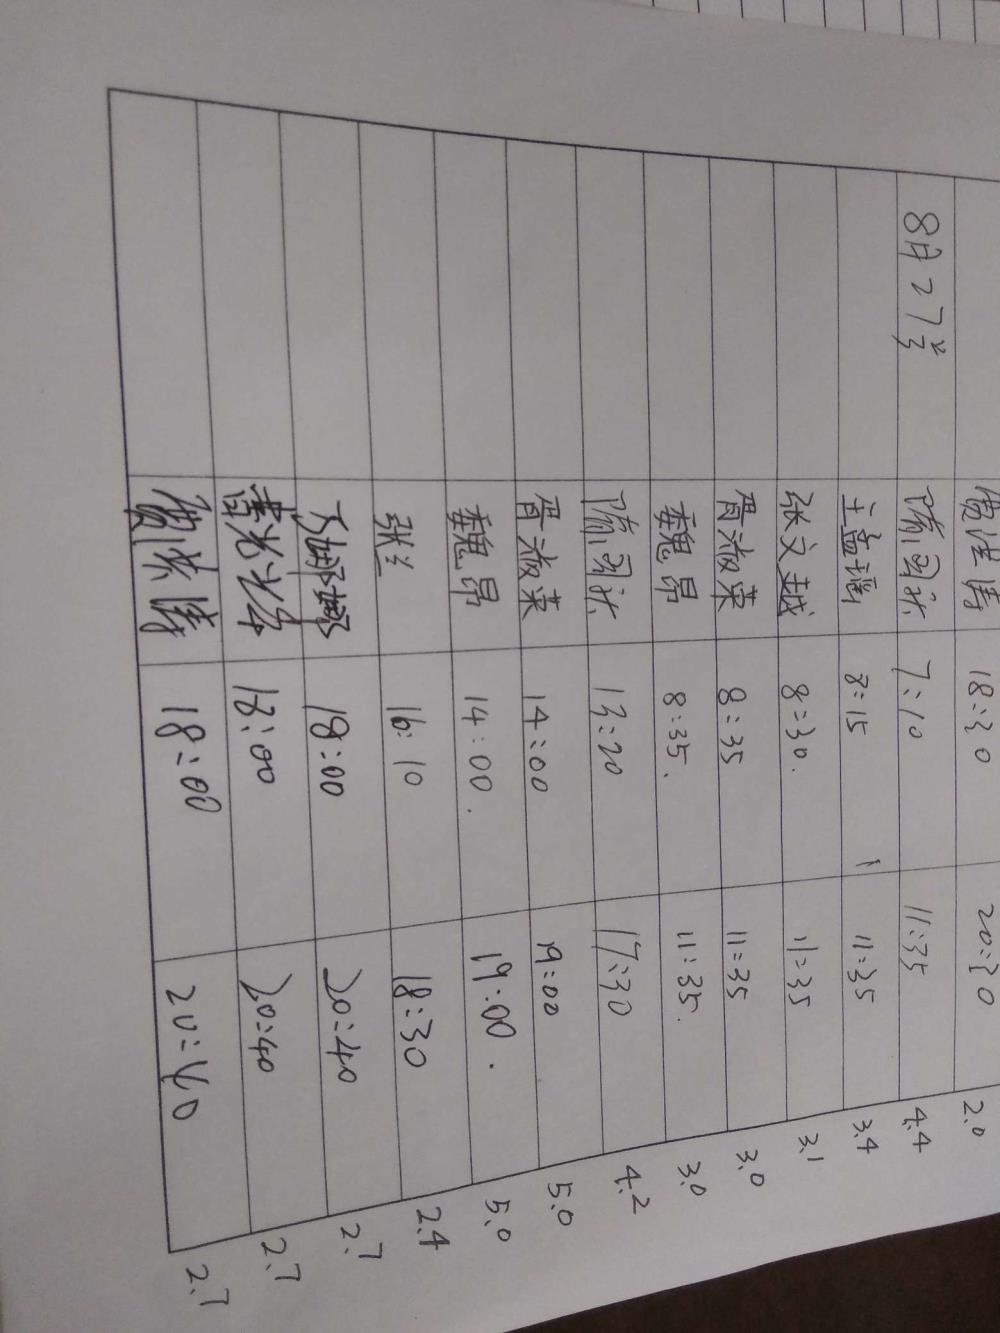 18:30 20:30 2.0
8月27号 7:10 11:35 4.4
王孟瑶 8:15 11:35 3.4
张文越 8:30. 11:35 3.1
胥淑荣 8:35 11:35 3.0
魏昂 8:35. 11:35. 3.0
13:20 17:30 4.2
胥淑荣 14:00 19:00 5.0
魏昂 14:00. 19:00. 5.0
16:10 18:30 2.4
18:00 20:40 2.7
18:00 20:40 2.7
18:00 20:40 2.7